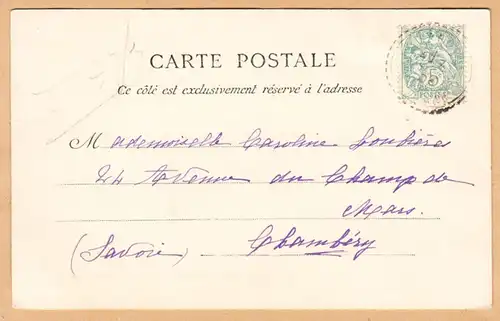 CARTE POSTALE
Ce côté est exclusivement réservé à l'adresse
Mademoiselle Caroline
24 Avenue du Champ de
Mars.
(Savoie) Chambéry